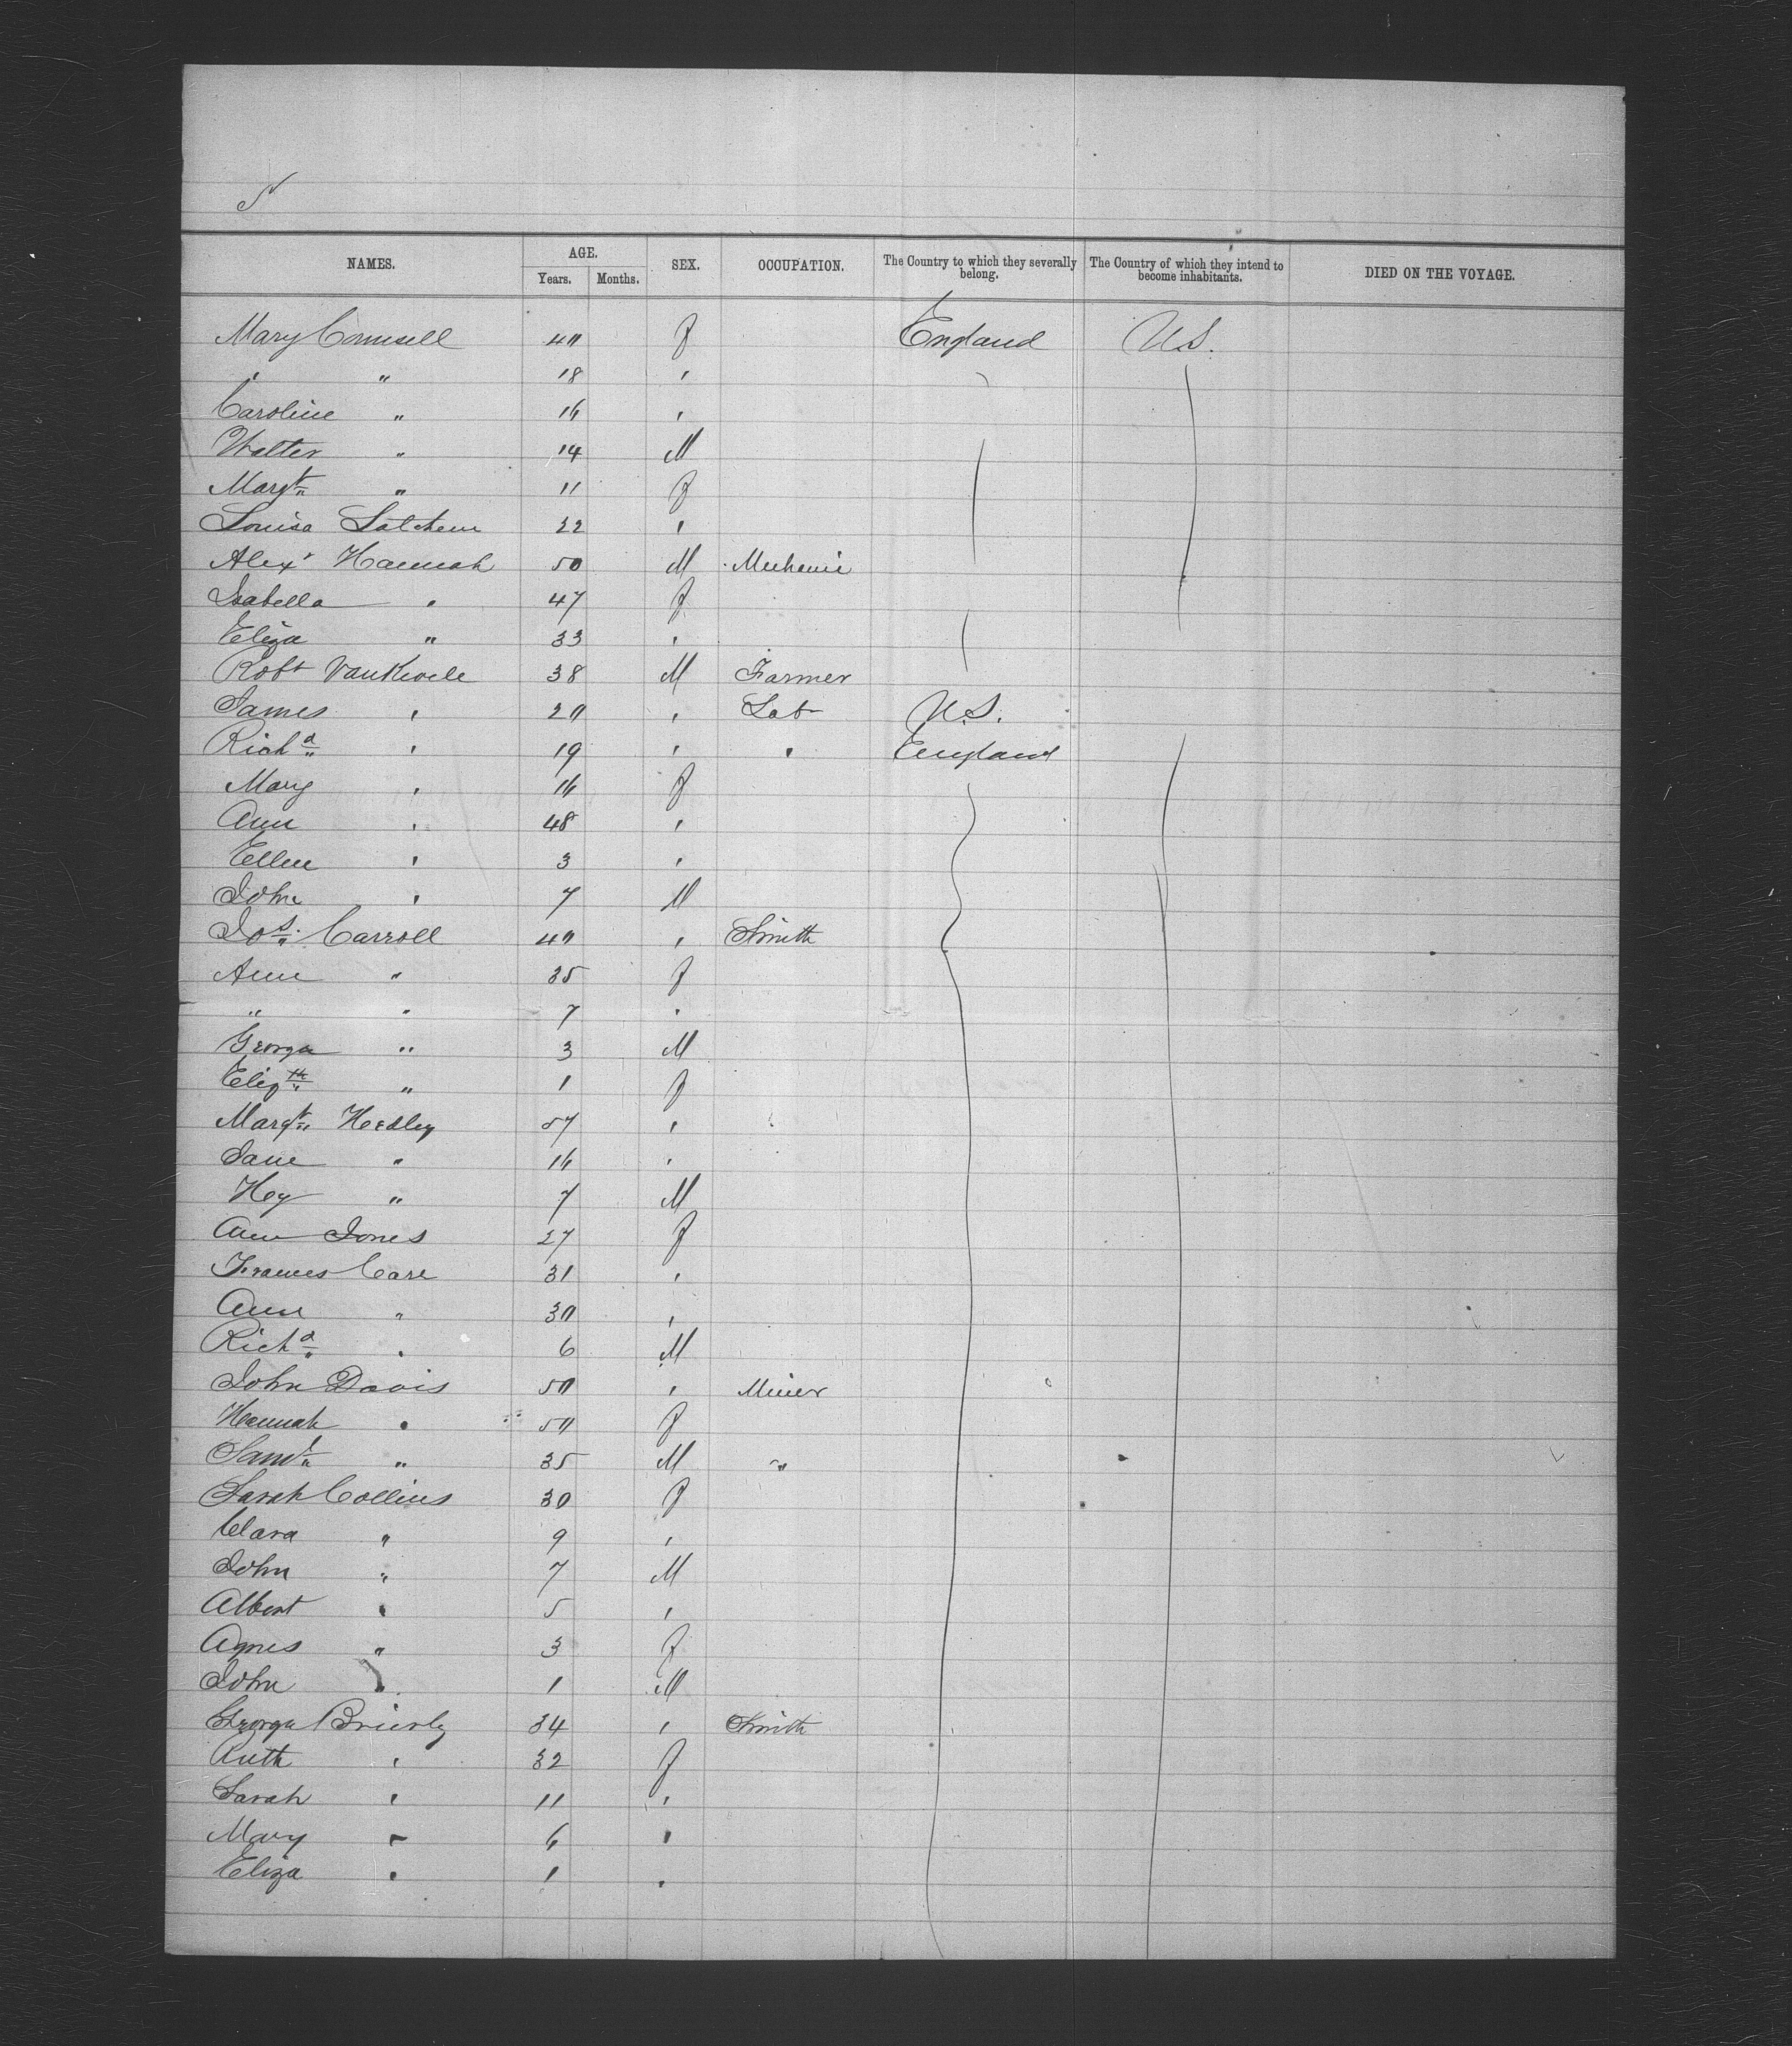 5
NAMES. AGE. Years. Months. SEX. OCCUPATION. The Country to which they severally belong. The Country of which they intend to become inhabitants. DIED ON THE VOYAGE.
Mary 40 f England U.S.
" " 18 "
Caroline " 16 "
Walter " 14 M
Margt " 11 f
Louisa Latchem 22 "
Alexr Hannah 50 M Mechanic
Isabella " 47 f
Eliza " 33 "
Robt 38 M Farmer
James " 20 " Lab U.S.
Richd " 19 " " England
Mary " 16 f
Ann " 48 "
Ellen " 3 "
John " 7 M
Jos. Carroll 40 " Smith
Ann " 35 f
" " 7 "
George " 3 M
Elizth " 1 f
Margt Hedley 57 "
Jane " 16 "
Hy " 7 M
Ann Jones 27 f
Frances Care 31 "
Ann " 30 "
Richd " 6 M
John Davis 50 " Miner
Hannah " 50 f
Saml " 35 M "
Sarah Collins 30 f
Clara " 9 "
John " 7 M
Albert " 5 "
Agnes " 3 f
John " 1 M
George Brierly 34 " Smith
Ruth " 32 f
Sarah " 11 "
Mary " 6 "
Eliza " 1 "